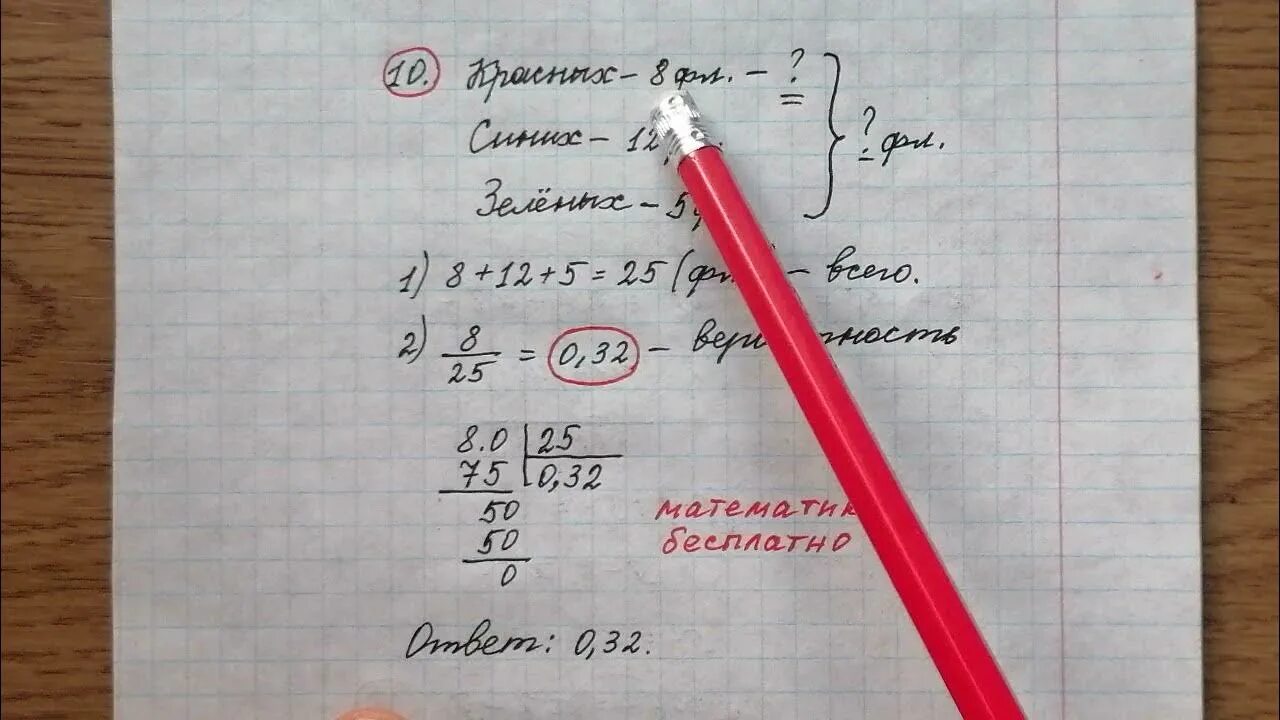 10. Красных – 8 фл. – ?
Синих – 12
Зелёных – 5
? фл.
1) 8 + 12 + 5 = 25 ( – всего.
2) 8/25 = 0,32 –
8.0 | 25
75 | 0,32
50
50
0
математик
бесплатно
Ответ: 0,32.